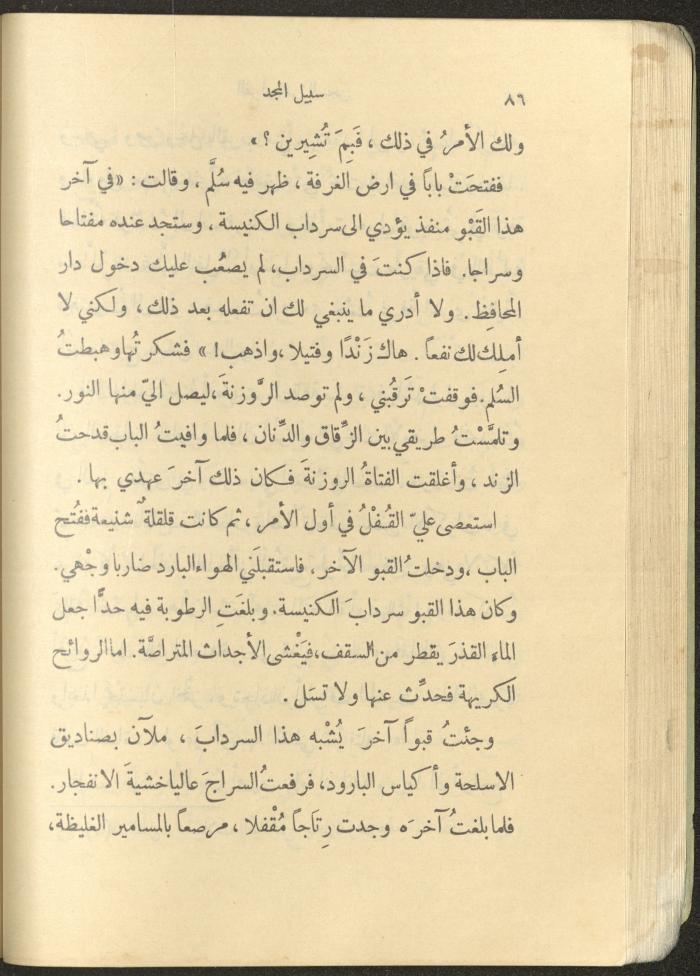 ٨٦ سبيل المجد
ولك الأمرُ في ذلك ، فَبِمَ تُشِيرين ؟ »
ففتحَتْ باباً في ارض الغرفة ، ظهر فيه سُلَّم ، وقالت : «في آخر
هذا القَبْو منفذ يؤدي الى سرداب الكنيسة ، وستجد عنده مفتاحا
وسراجا. فاذا كنتَ في السرداب، لم يصعُب عليك دخول دار
المحافِظ. ولا أدري ما ينبغي لك ان تفعله بعد ذلك ، ولكني لا
أملِك لك نفعاً . هاك زَنْدًا وفتيلا ، واذهب! » فشكرتُها وهبطتُ
السُلم. فوقفتْ تَرقُبني ، ولم توصد الرَّوزنةَ ، ليصل اليّ منها النور.
وتلمَّسْتُ طريقي بين الزِّقاق والدِّنان ، فلما وافيتُ الباب قدحتُ
الزند ، وأغلقت الفتاةُ الروزنةَ فكان ذلك آخرَ عهدي بها .
استعصى عليّ القُفْلُ في أول الأمر ، ثم كانت قلقلةٌ شنيعة ففُتح
الباب ، ودخلتُ القبو الآخر. فاستقبلَني الهواء البارد ضاربا وجْهي.
وكان هذا القبو سردابَ الكنيسة. وبلغَتِ الرطوبة فيه حدًّا جعل
الماء القذرَ يقطر من السقف، فيَغْشى الأجداث المتراصَّة. اما الروائح
الكريهة فحدِّث عنها ولا تسَل .
وجئتُ قبواً آخرَ يُشْبه هذا السردابَ ، ملآن بصناديق
الاسلحة وأكياس البارود، فرفعتُ السراجَ عاليا خشيةَ الانفجار.
فلما بلغتُ آخرَه وجدت رِتَاجاً مُقْفلا ، مرصعاً بالمسامير الغليظة،